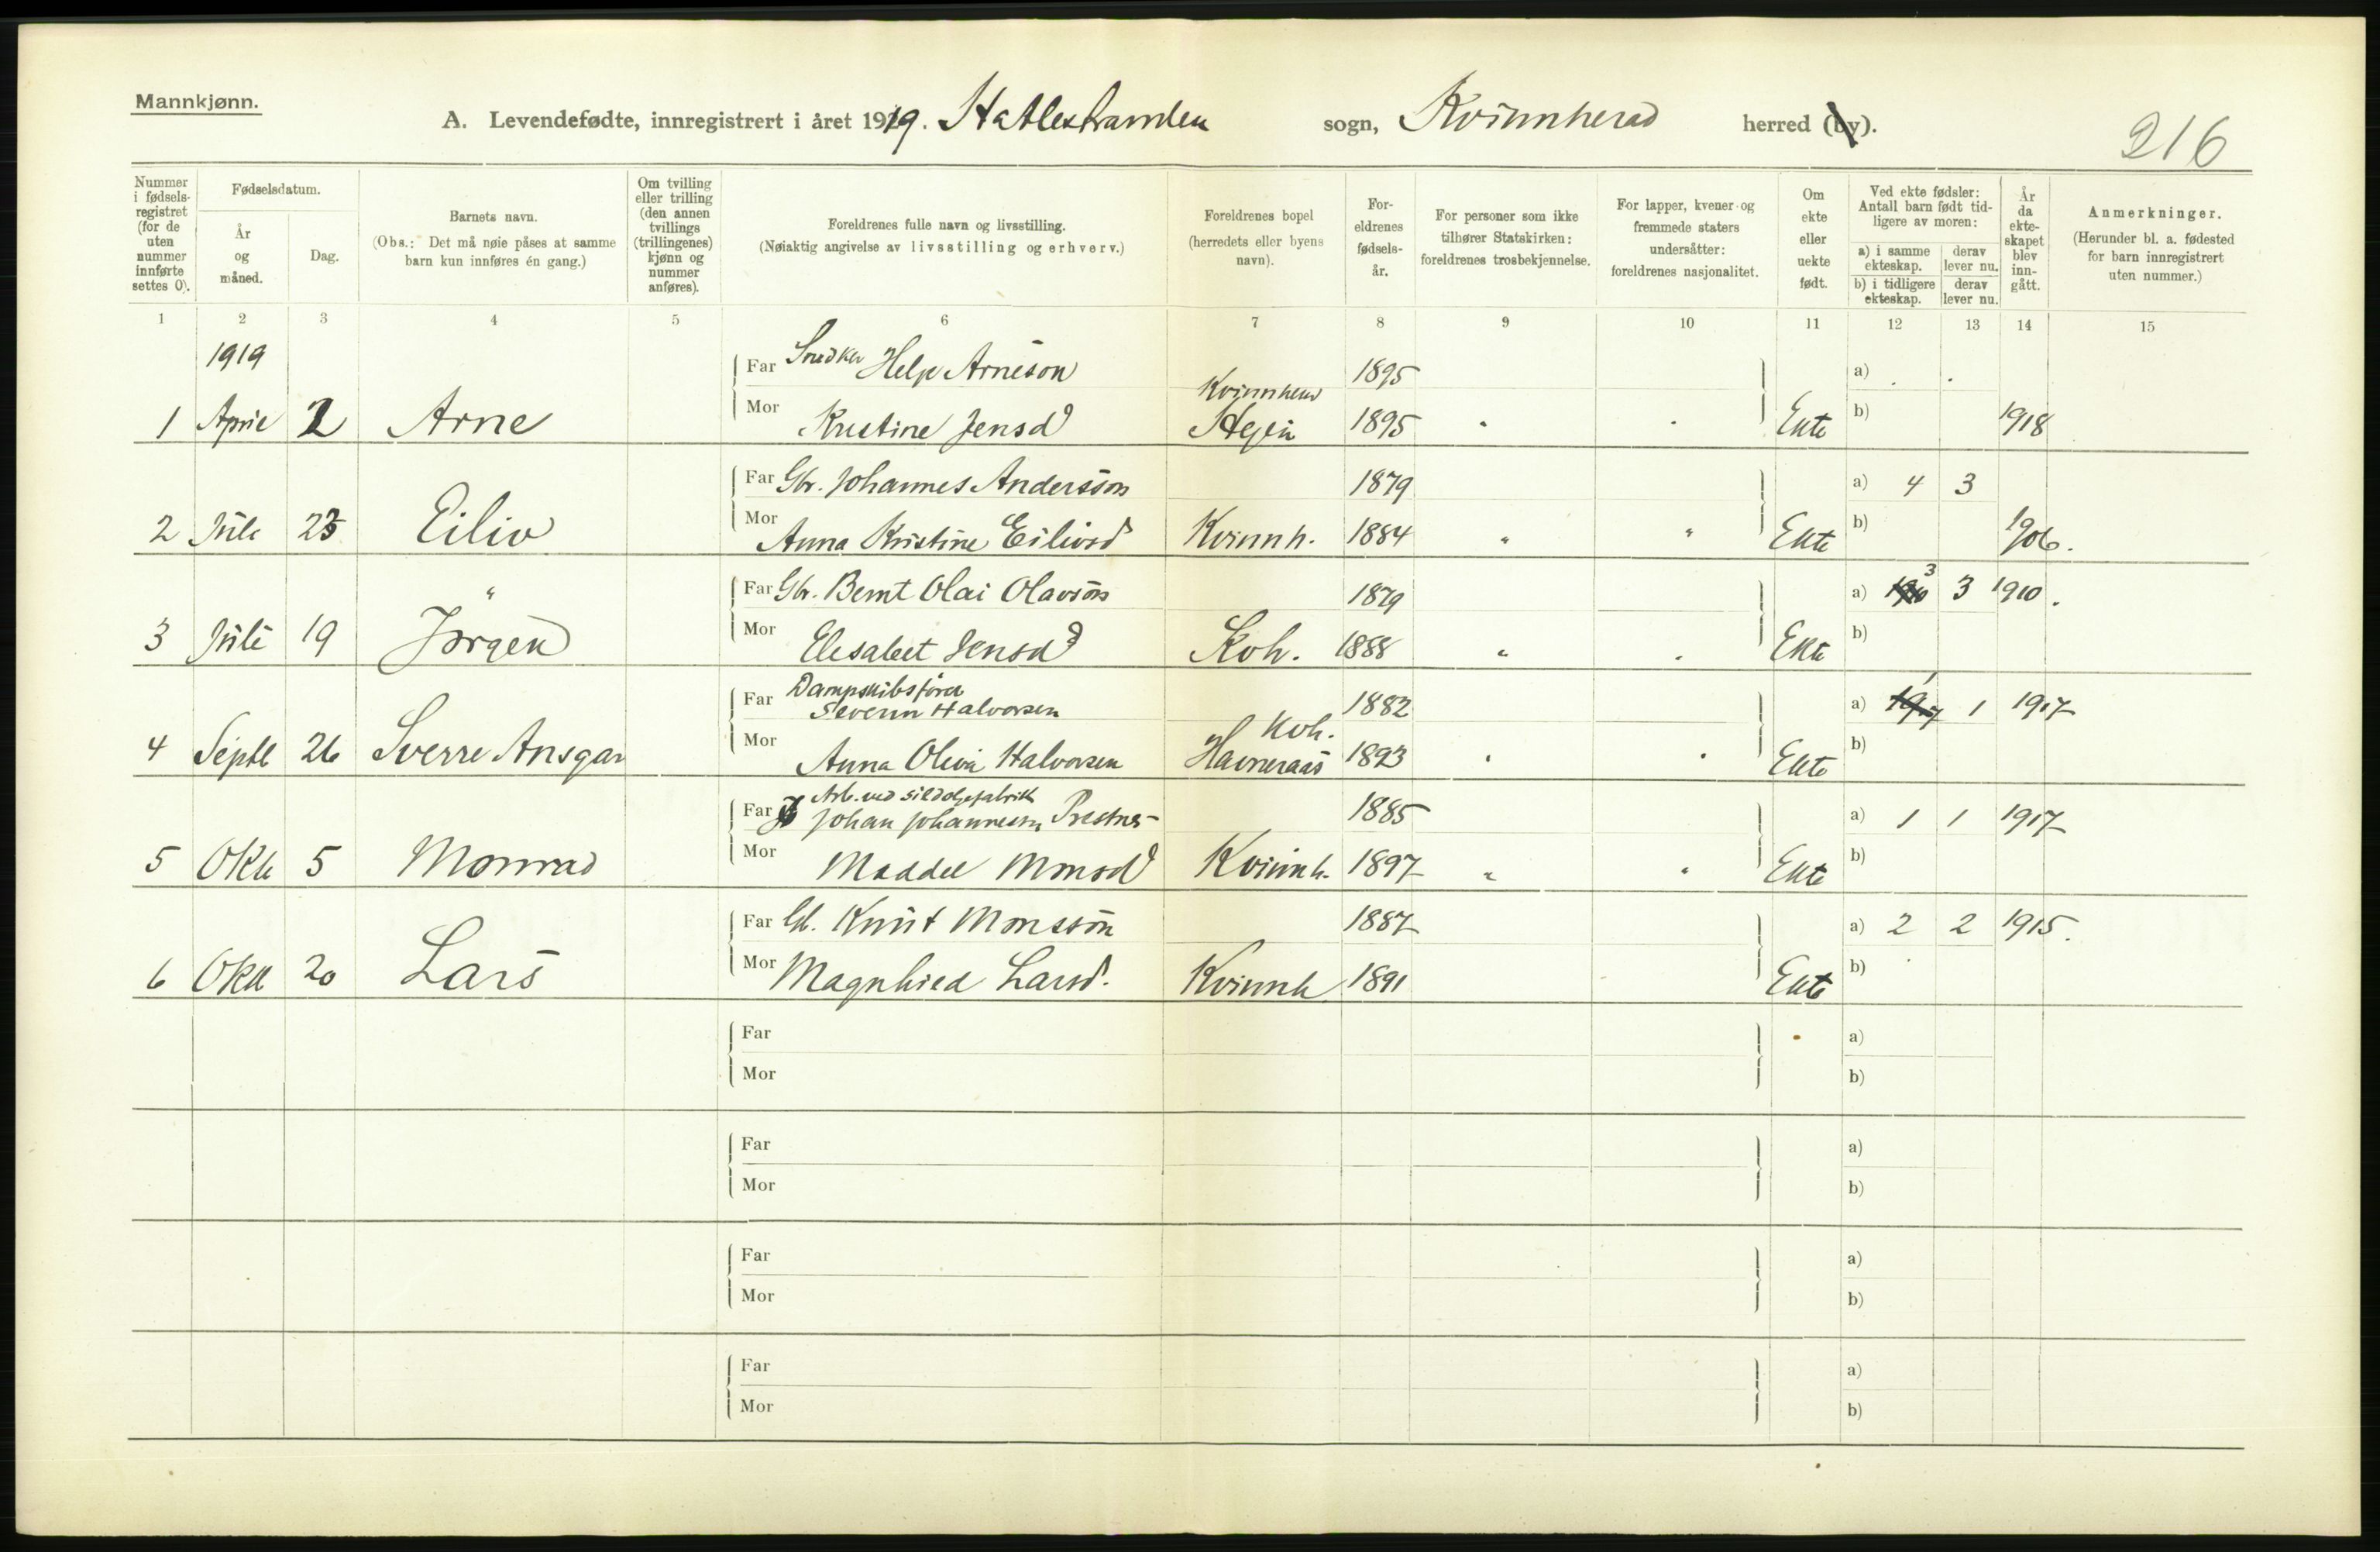 Mannkjønn.
A. Levendefødte, innregistrert i året 1919. Hatlestranden sogn, Kvinnherad herred (by).
216
Nummer i fødsels-registret (for de uten nummer innførte settes 0).
Fødselsdatum.
År og måned.
Dag.
Barnets navn.
(Obs.: Det må nøie påses at samme barn kun innføres én gang.)
Om tvilling eller trilling (den annen tvillings (trillingenes) kjønn og nummer anføres).
Foreldrenes fulle navn og livsstilling.
(Nøiaktig angivelse av livsstilling og erhverv.)
Foreldrenes bopel (herredets eller byens navn).
For-eldrenes fødsels-år.
For personer som ikke tilhører Statskirken: foreldrenes trosbekjennelse.
For lapper, kvener og fremmede staters undersåtter: foreldrenes nasjonalitet.
Om ekte eller uekte født.
Ved ekte fødsler: Antall barn født tid-ligere av moren:
a) i samme ekteskap.
derav lever nu.
b) i tidligere ekteskap.
derav lever nu.
År da ekte-skapet blev inn-gått.
Anmerkninger.
(Herunder bl. a. fødested for barn innregistrert uten nummer.)
1 2 3 4 5 6 7 8 9 10 11 12 13 14 15
1919
Far Snedker Helje Arneson 1895 a) . .
1 April 2 Arne Mor Kristine Jensd Kvinnherad 1895 " " Ekte b) 1918
Far Gbr. Johannes Andersson 1879 a) 4 3
2 Juli 23 Eiliv Mor Anna Kristine Eilivsd Kvinnh. 1884 " " Ekte b) 1906.
Far Gbr. Bernt Olai Olavson 1879 a) 3 3 1910.
3 Juli 19 " Jørgen Mor Elisabet Jensd Kvh. 1888 " " Ekte b)
Far Dampskibsfører Severin Halvorsen 1882 a) 1 1 1917
4 Septb 26 Sverre Ansgar Mor Anna Olivia Halvorsen Kvh. Havneraas 1893 " " Ekte b)
Far Arb. ved sildoljefabrik
Johan Johannessn Prestnes 1885 a) 1 1 1917
5 Okt 5 Monrad Mor Maddel Monsd Kvinnh. 1897 " " Ekte b)
Far Gb. Knut Monsson 1887 a) 2 2 1915.
6 Okt 20 Lars Mor Magnhild Larsd. Kvinnh 1891 Ekte b)
Far a)
Mor b)
Far a)
Mor b)
Far a)
Mor b)
Far a)
Mor b)